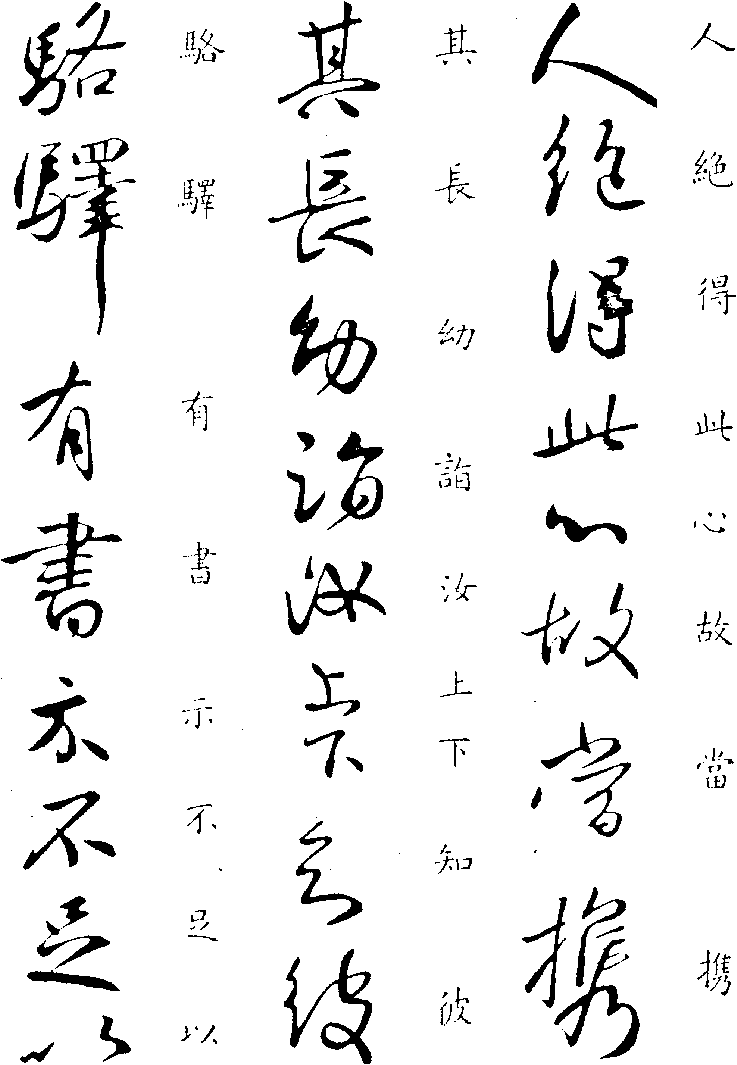 人絕得此心故當携
人絕得此心故當携
其長幼詣汝上下知彼
其長幼詣汝上下知彼
駱驛有書示不足以
駱驛有書示不足以